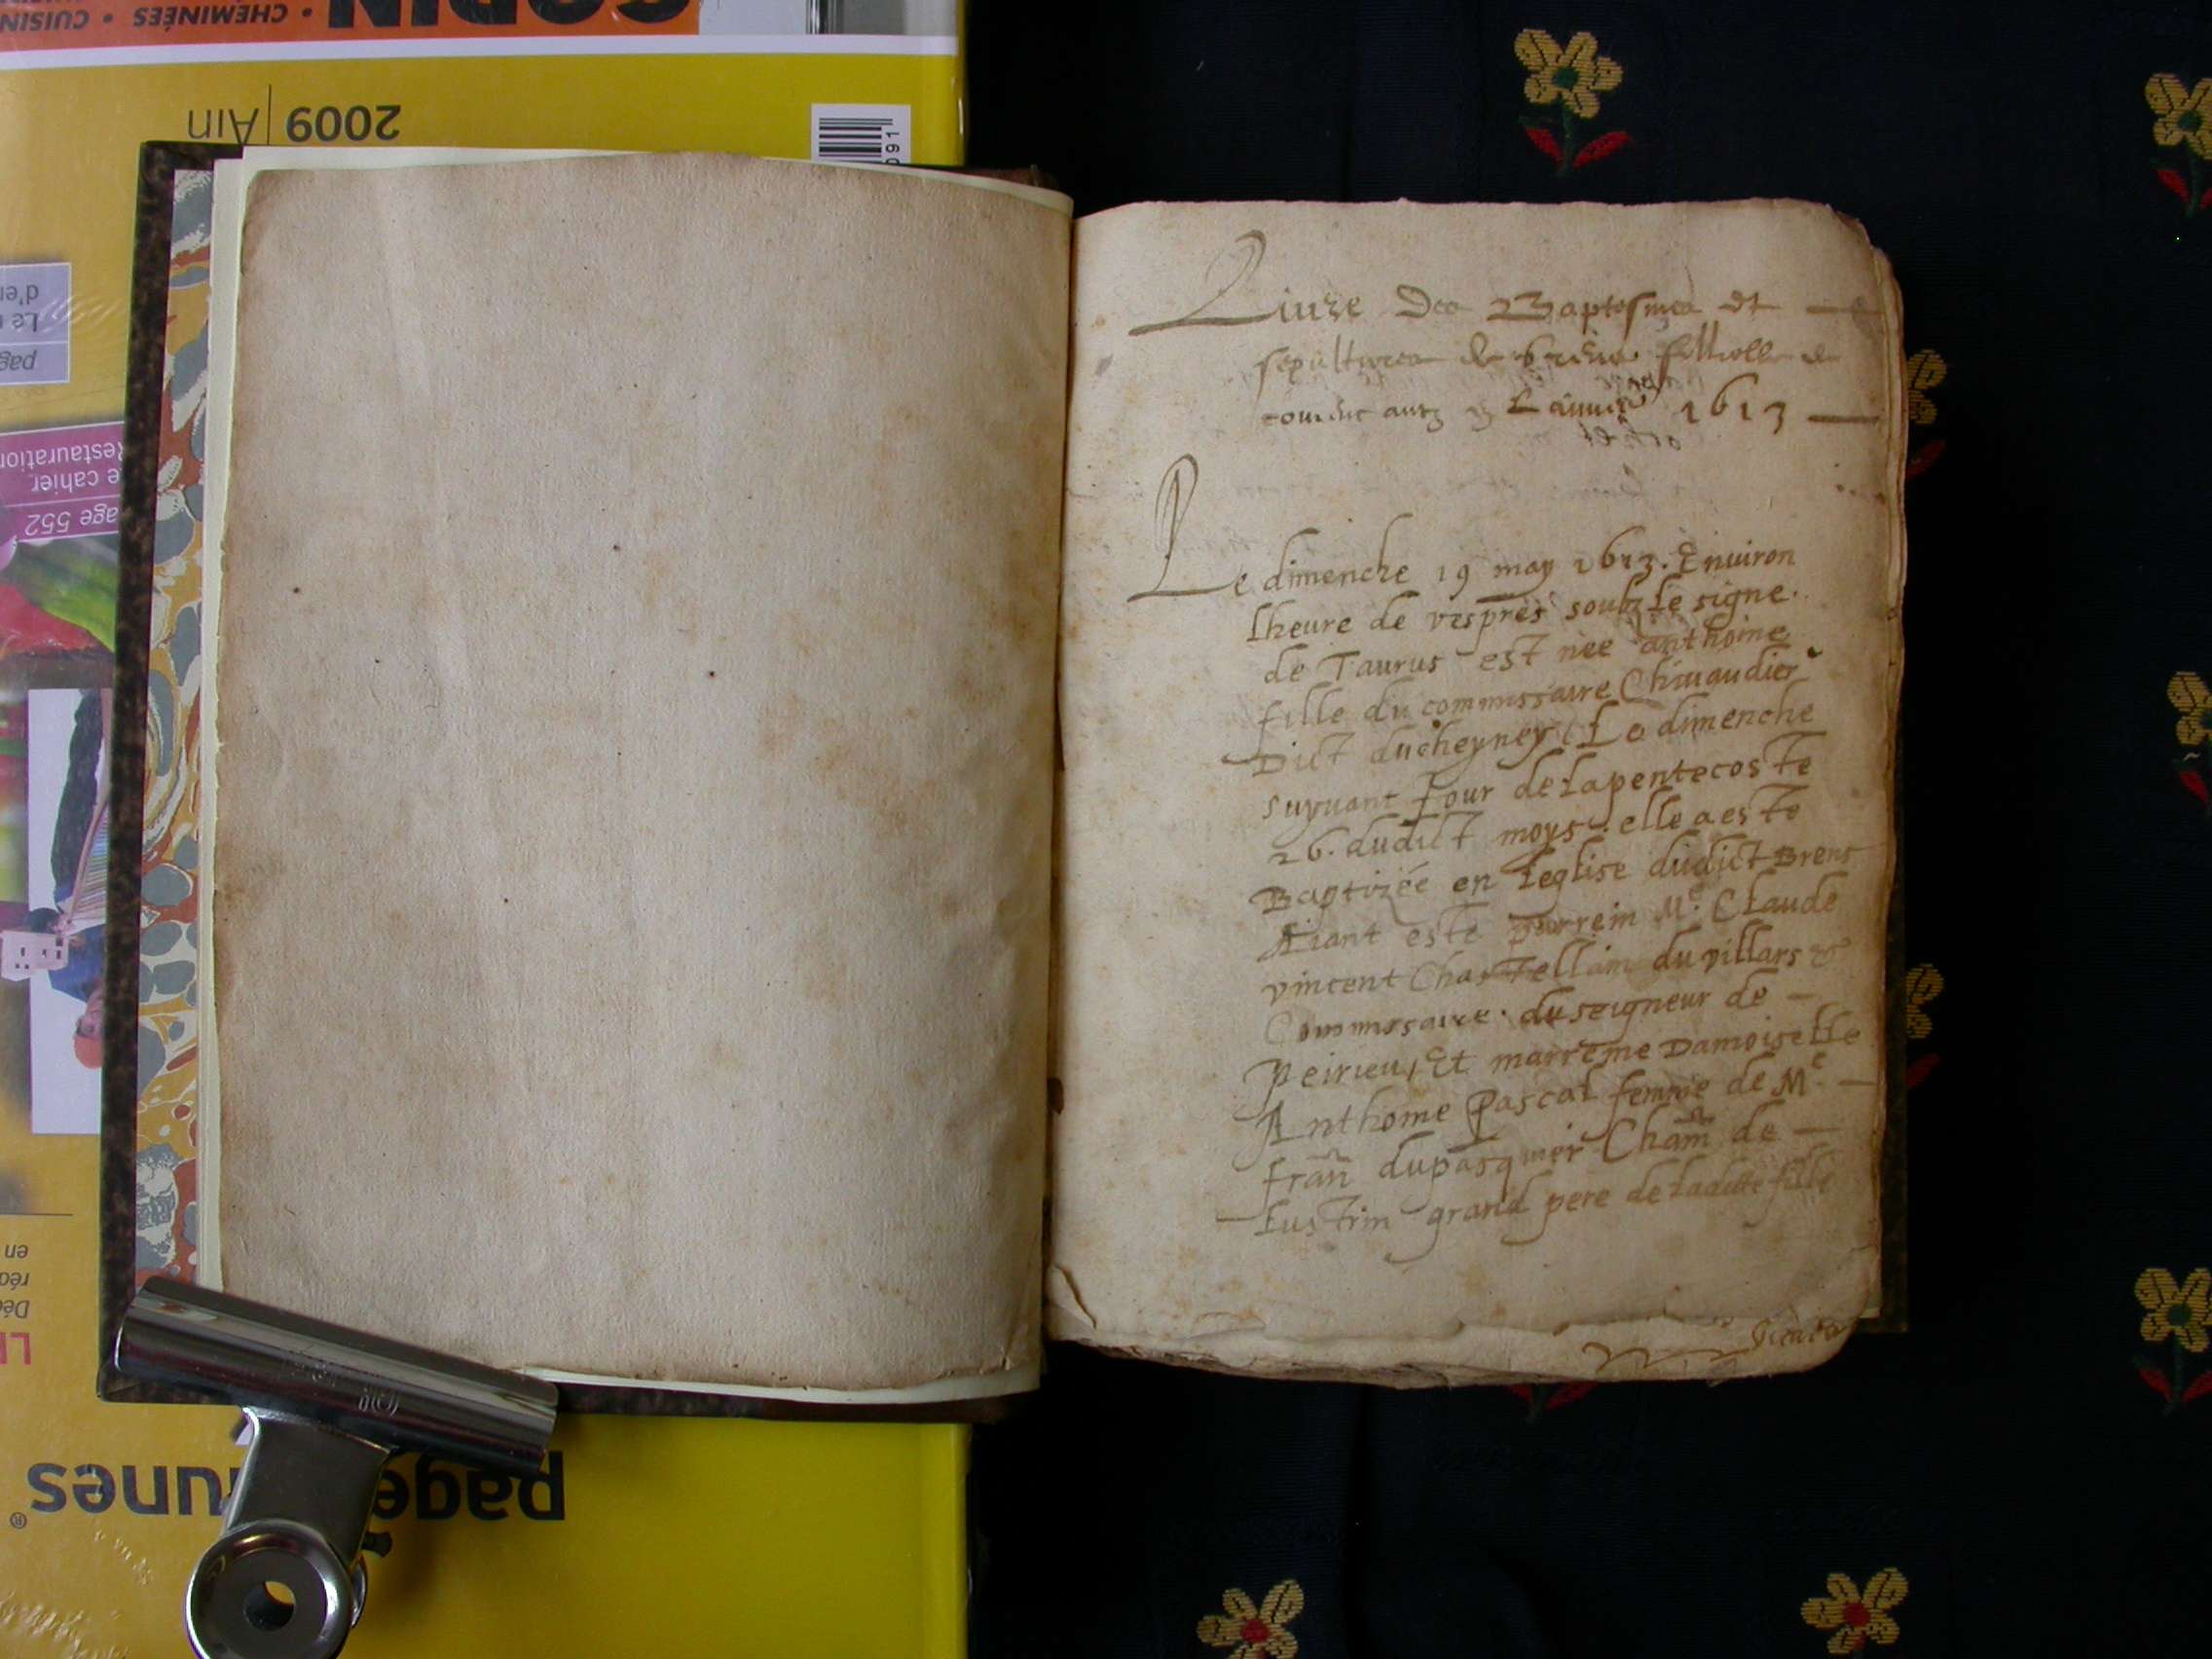 GODIN
CHEMINÉES • CUISIN
2009 | Ain
Le
d'e
page
e cahier
Restauration
age 552
en
réd
Déc
pages
unes
®
Livre Des Baptesmes et
sepultures de filliolle de
1613
Le dimenche 19 may 1613. Environ
lheure de vespres soubz le signe.
de Taurus est nee anthoine
fille du commissaire Chivaudier
Dict ducheyney Le dimenche
suyvant Jour de la pentecoste
26. dudict moys. elle a este
Baptizée en leglise dudict Brens
Aiant este parrein Me. Claude
vincent Chastellain du villars &
Commissaire. du seigneur de
Peirieu, Et marreine Damoiselle
Anthoine Pascal femme de Me
fran dupasquier Cham de
Lustrin grand pere de ladicte fille